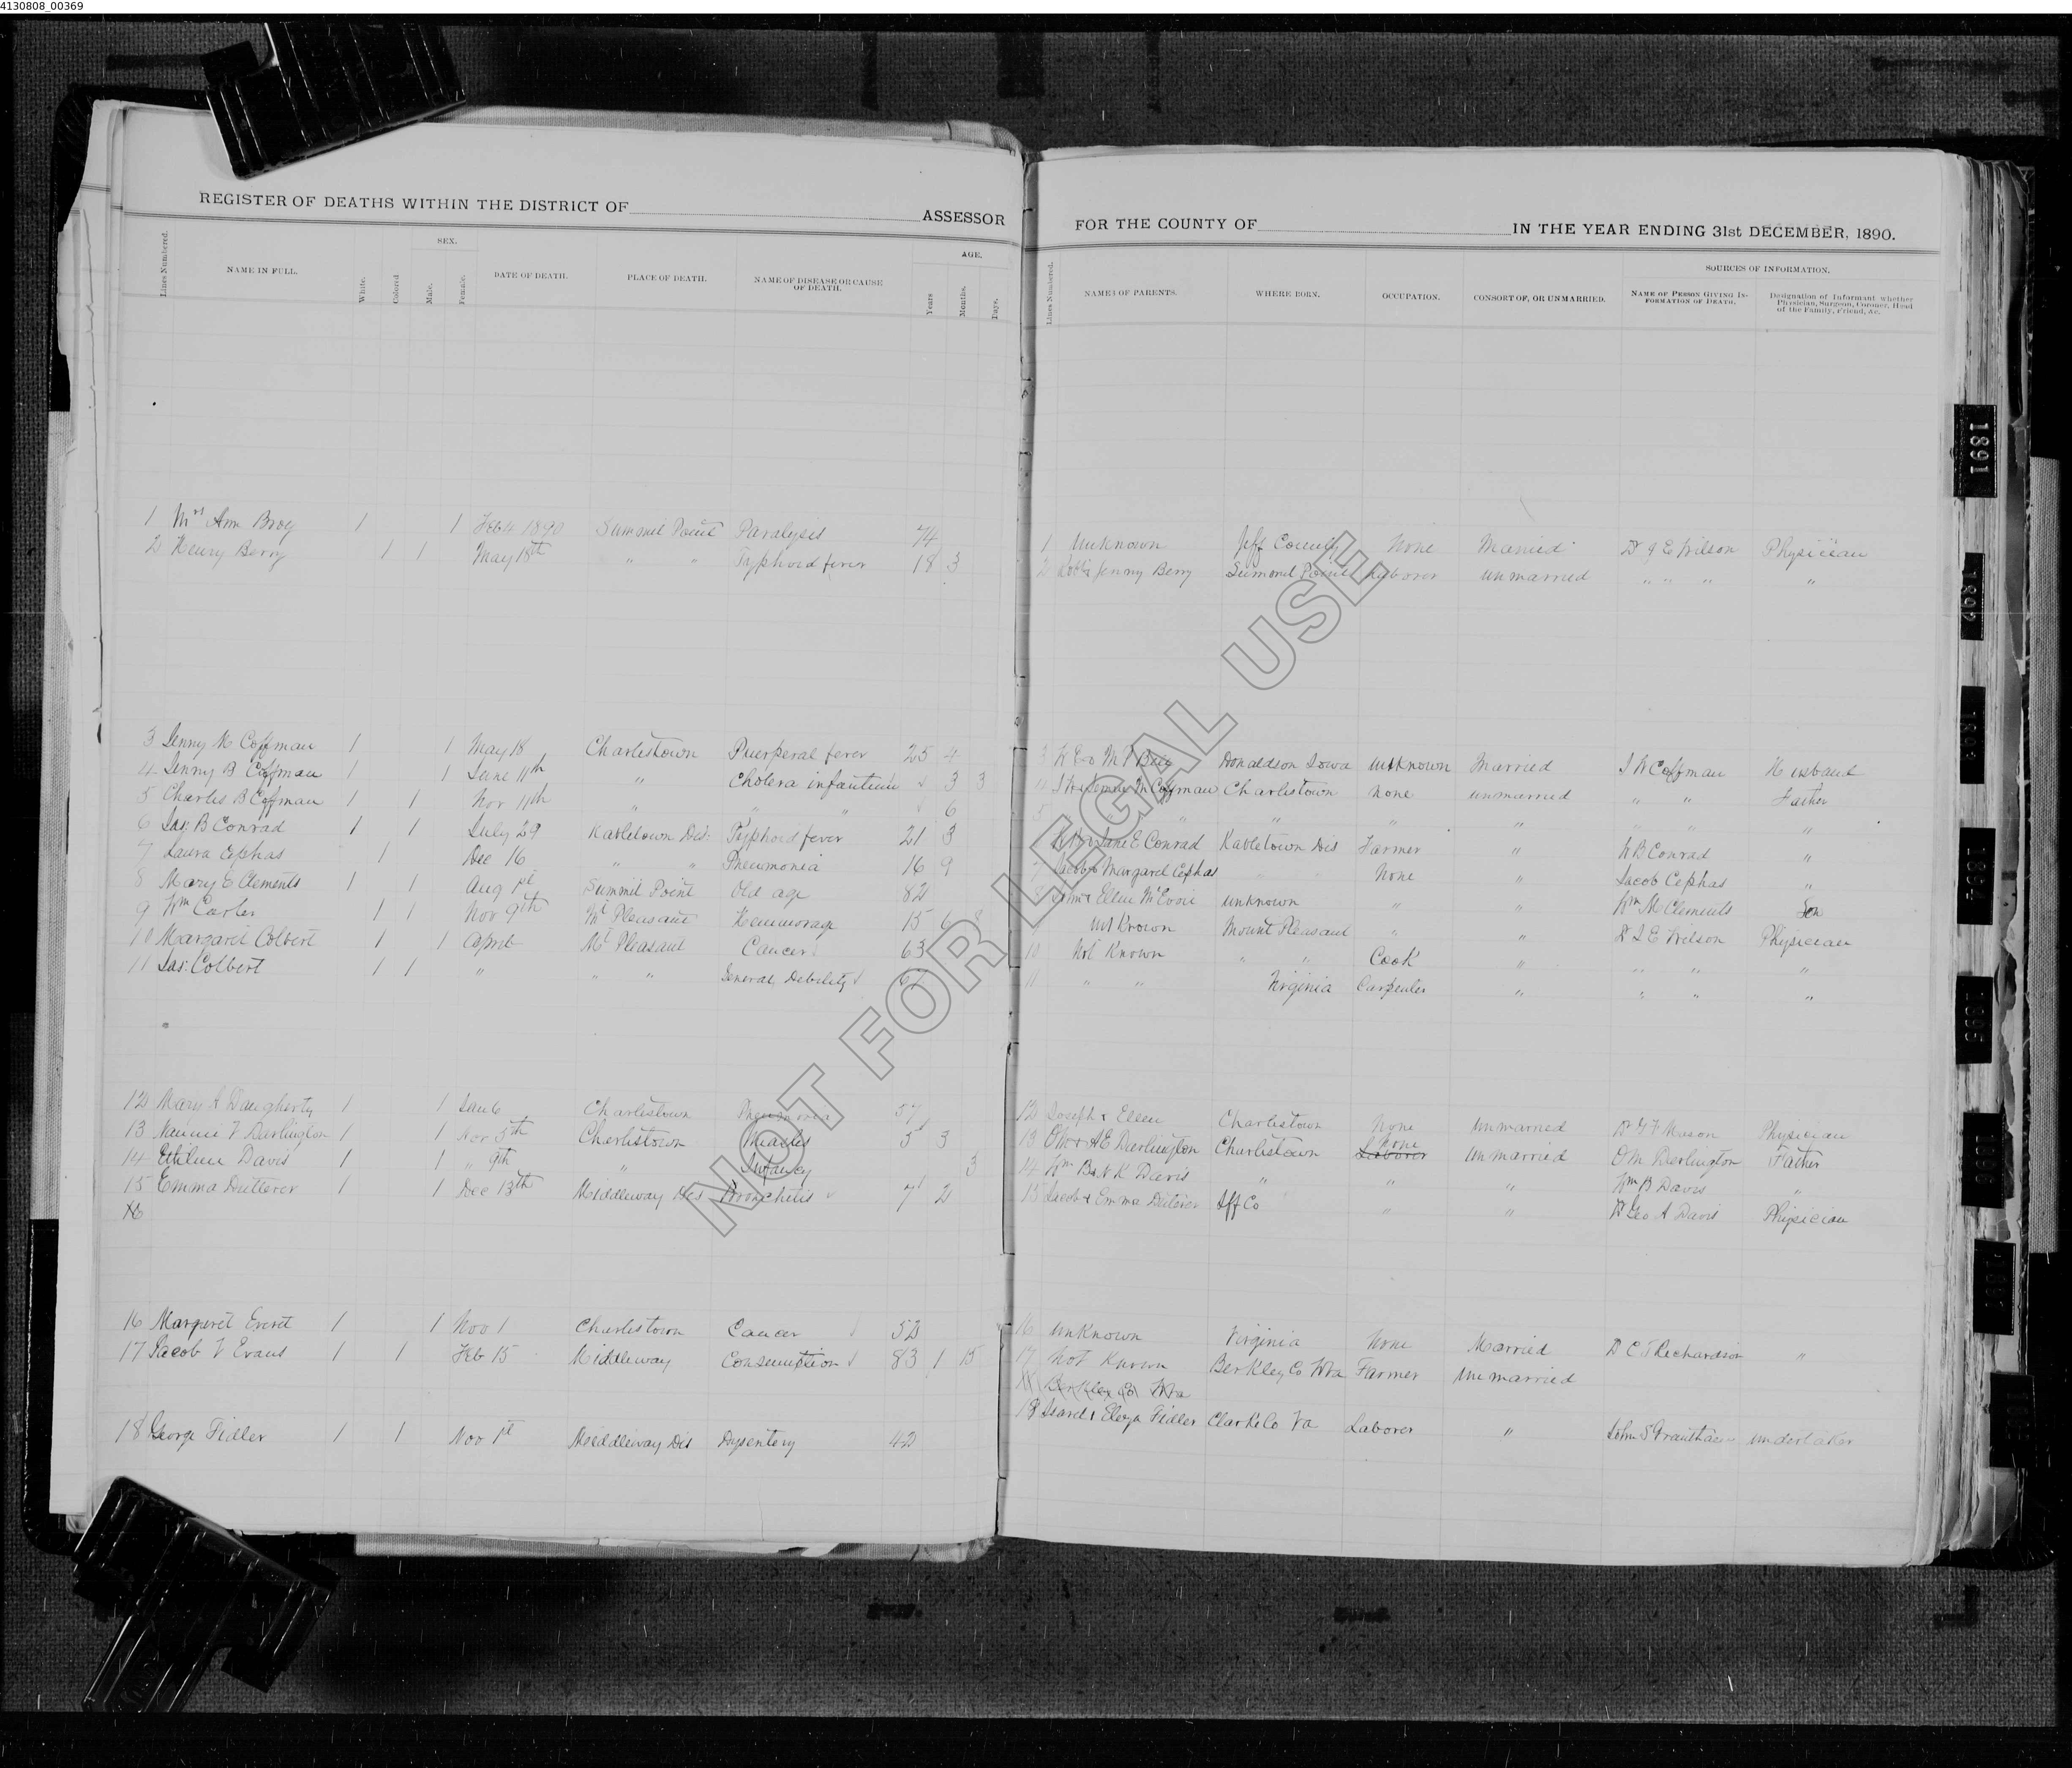 4130808_00369
REGISTER OF DEATHS WITHIN THE DISTRICT OF ASSESSOR
Lines Numbered. NAME IN FULL. White. Colored SEX. Male. Female. DATE OF DEATH. PLACE OF DEATH. NAME OF DISEASE OR CAUSE OF DEATH. AGE. Years Months. Days.
1 Mrs Ann Broy 1 1 Feb 4 1890 Summit Point Paralysis 74
2 Henry Berry 1 1 May 18th " " Typhoid fever 18 3
3 Jenny M Coffman 1 1 May 18 Charlestown Puerperal fever 25 4
4 Jenny B Coffman 1 1 June 11th " Cholera infantum 3 3
5 Charles B Coffman 1 1 Nov 11th " " " 6
6 Jas: B Conrad 1 1 July 29 Kabletown Dis: Typhoid fever 21 3
7 Laura Cephas 1 Dec 16 " " Pneumonia 16 9
8 Mary E Clements 1 1 Aug 1st Summit Point Old age 82
9 Wm Carter 1 1 Nov 9th Mt Pleasant Hemmorage 15 6 8
10 Margaret Colbert 1 1 April Mt Pleasant Cancer 63
11 Jas: Colbert 1 1 " " " General Debility
12 Mary A Daugherty 1 1 Jan 6 Charlestown Pneumonia 57
13 Nannie V Darlington 1 1 Nov 5th Charlestown Measles 5 3
14 Davis 1 1 " 9th " Infancy 3
15 Emma Dutterer 1 1 Dec 13th Middleway Dis Bronchitis 7 2
16
16 Margaret Everet 1 1 Nov 1 Charlestown Cancer 52
17 Jacob V Evans 1 1 Feb 15 Middleway Consumption 83 1 15
18 George Fidler 1 1 Nov 1st Middleway Dis Dysentery 42
FOR THE COUNTY OF IN THE YEAR ENDING 31st DECEMBER, 1890.
Lines Numbered. NAMES OF PARENTS. WHERE BORN. OCCUPATION. CONSORT OF, OR UNMARRIED. SOURCES OF INFORMATION. NAME OF PERSON GIVING INFORMATION OF DEATH. Designation of Informant whether Physician, Surgeon, Coroner, Head of the Family, Friend, &c.
1 Unknown Jeff County None Married Dr J E Wilson Physician
2 Jenny Berry Summit Point Laborer unmarried " " " "
3 Donaldson Iowa unknown Married J W Coffman Husband
4 J W & Jennie M Coffman Charlestown None unmarried " " Father
5 " " " " " " " "
Jane E Conrad Kabletown Dis Farmer " W B Conrad "
7 Jacob & Margaret Cephas " " None " Jacob Cephas "
8 John & Ellen unknown " " Wm M Clements Son
unknown Mount Pleasant " " Dr J E Wilson Physician
10 Not Known " " Cook " " " "
11 " " Virginia Carpenter " " " "
12 Joseph & Ellen Charlestown None unmarried Mason Physician
13 O M & A E Darlington Charlestown Laborer None unmarried O M Darlington Father
14 Wm B & N K Davis " " " Wm B Davis "
15 Jacob & Emma Dutterer Jeff Co " " Dr Geo A Davis Physician
16 unknown Virginia None Married Dr C T Richardson "
17 Not Known Berkley Co Wva Farmer unmarried
Berkley Co Wva
18 Israel & Eliza Fidler Clarke Co Va Laborer " John S Grantham undertaker
NOT FOR LEGAL USE
1891
1892
1893
1894
1895
1896